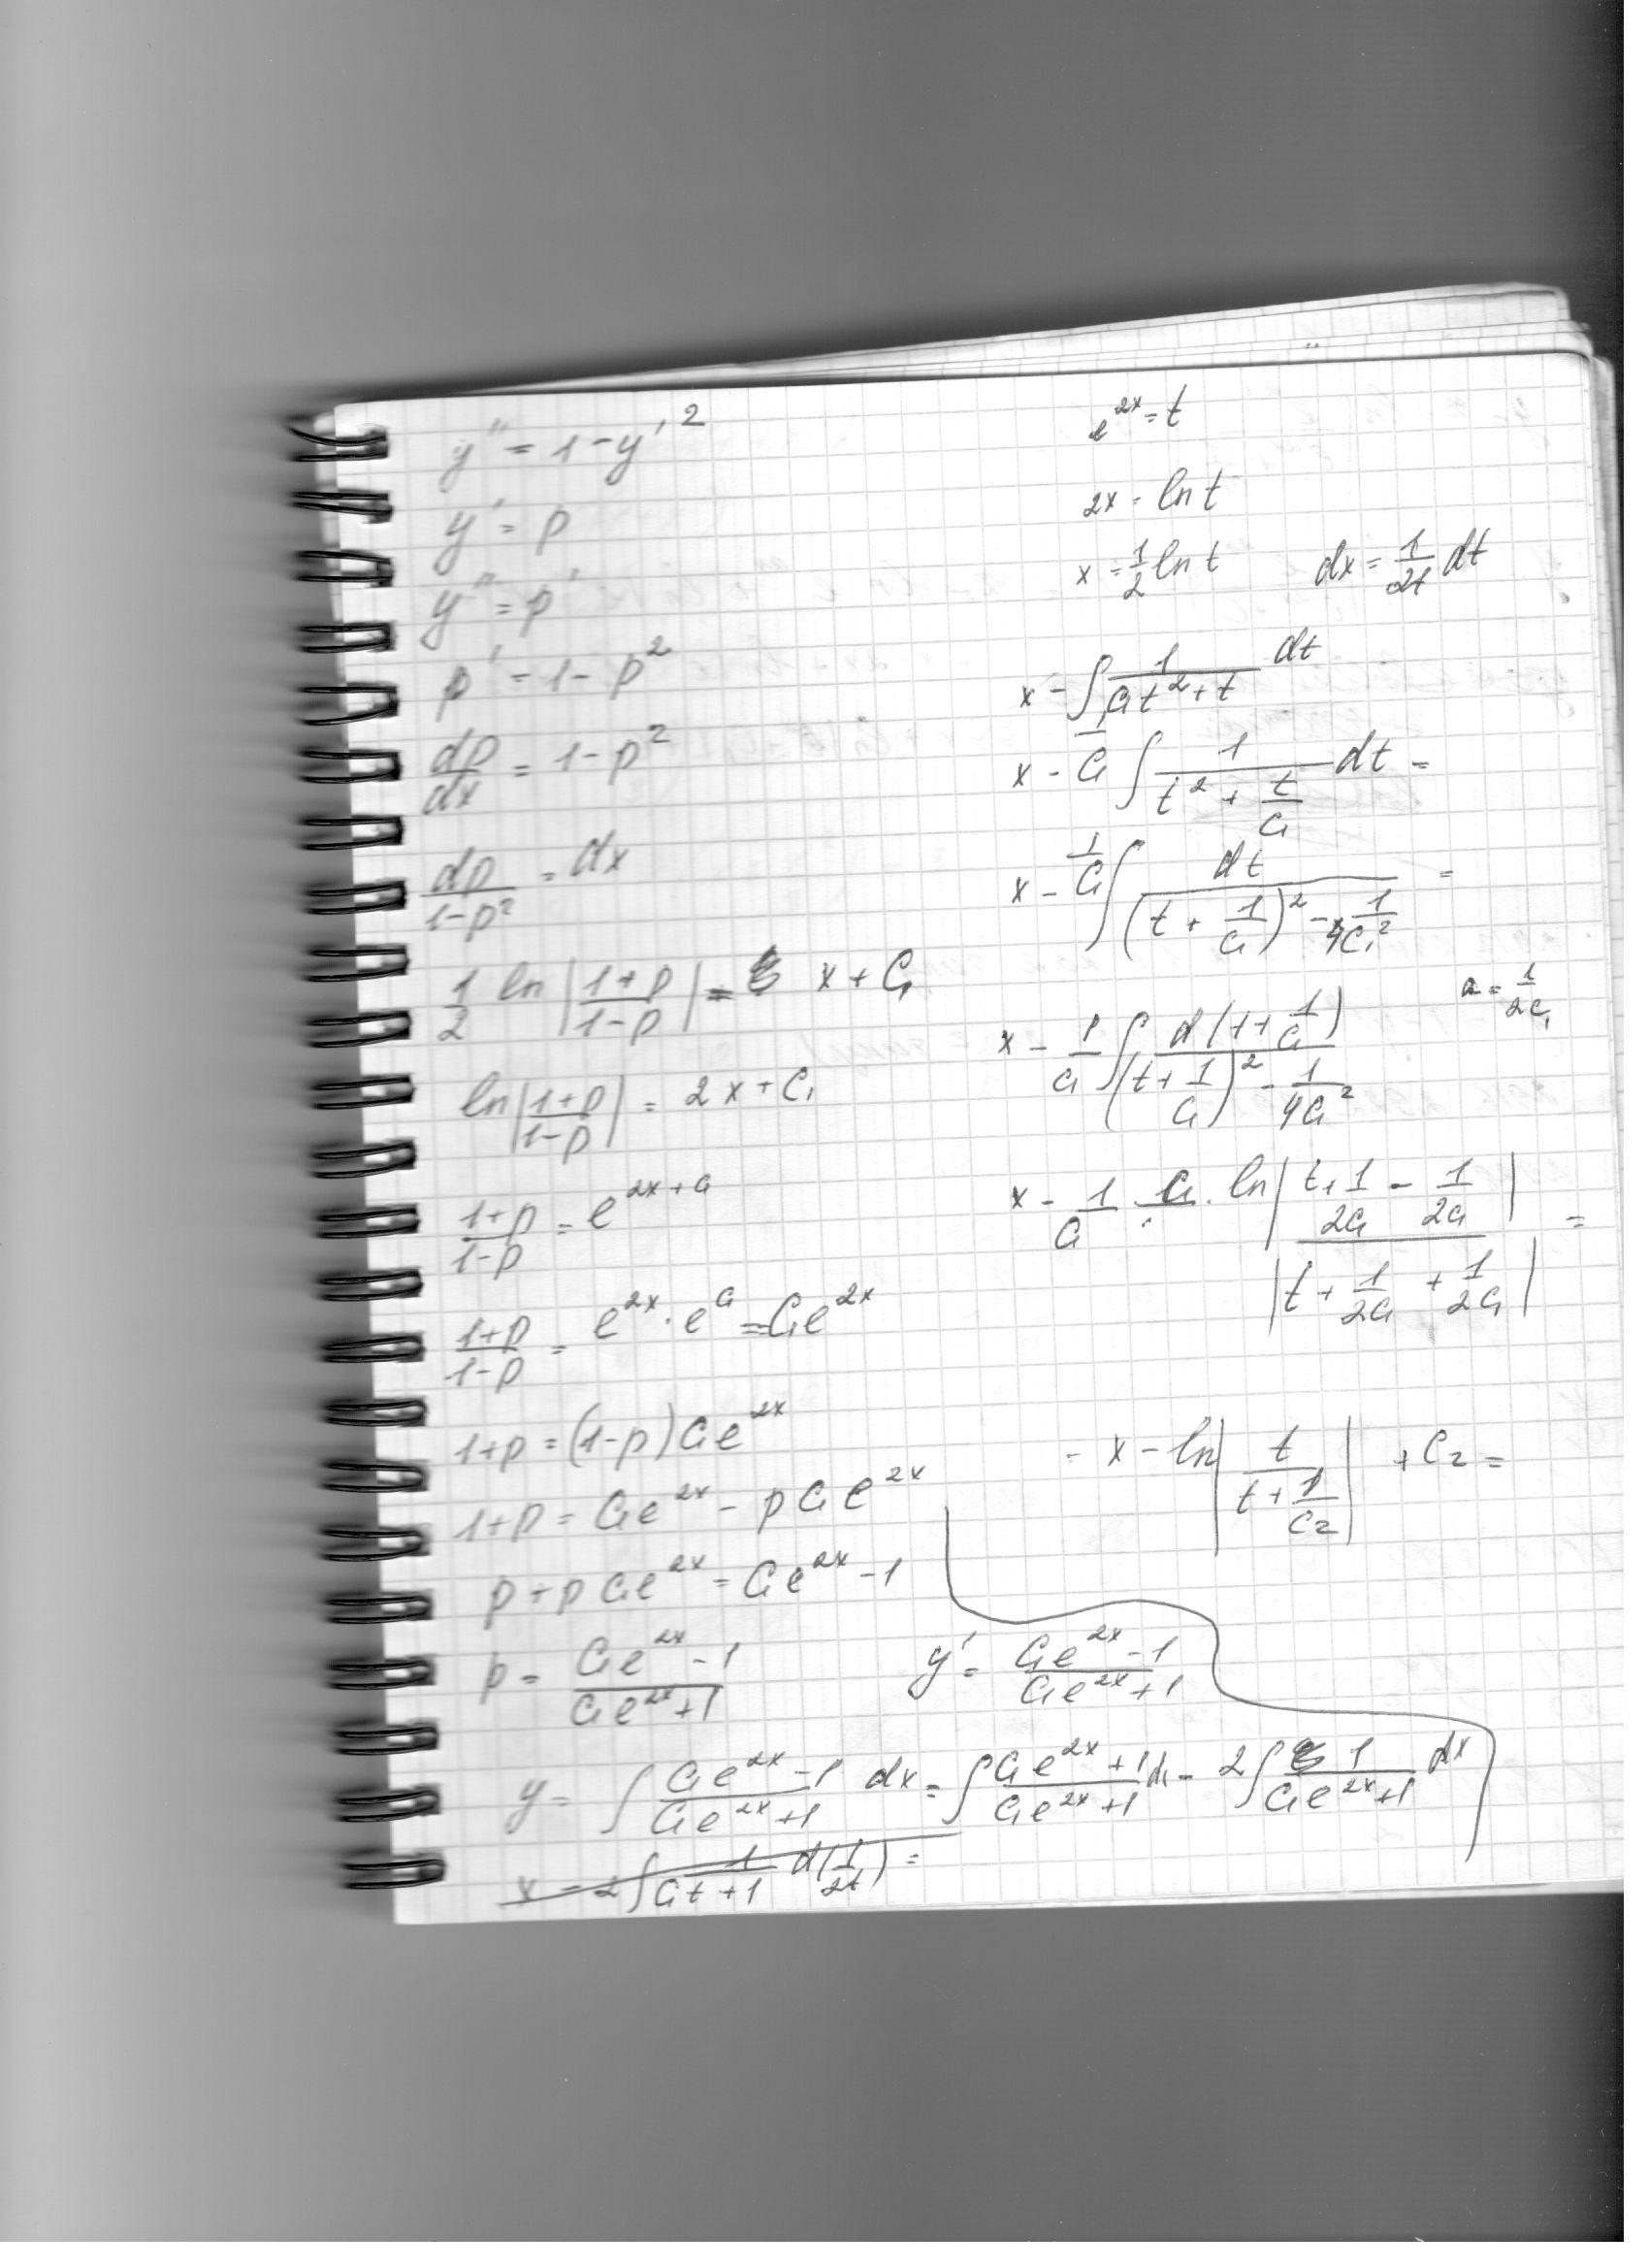 y'' = 1 - y'²
y' = p
y'' = p'
p' = 1 - p²
dp/dx = 1 - p²
dp/(1-p²) = dx
1/2 ln |(1+p)/(1-p)| = x + C₁
ln |(1+p)/(1-p)| = 2x + C₁
(1+p)/(1-p) = e^(2x+C₁)
(1+p)/(1-p) = e^(2x) · e^(C₁) = C₁e^(2x)
1+p = (1-p) C₁e^(2x)
1+p = C₁e^(2x) - p C₁e^(2x)
p + p C₁e^(2x) = C₁e^(2x) - 1
p = (C₁e^(2x) - 1)/(C₁e^(2x) + 1) y' = (C₁e^(2x) - 1)/(C₁e^(2x) + 1)
y = ∫ (C₁e^(2x) - 1)/(C₁e^(2x) + 1) dx = ∫ (C₁e^(2x) + 1)/(C₁e^(2x) + 1) dx - 2∫ 1/(C₁e^(2x) + 1) dx
x - 2∫ 1/(C₁t + 1) d(1/2t) =
e^(2x) = t
2x = ln t
x = 1/2 ln t dx = 1/2t dt
x - ∫ 1/(C₁t² + t) dt
x - 1/C₁ ∫ 1/(t² + t/C₁) dt =
x - 1/C₁ ∫ dt/((t + 1/C₁)² - 1/4C₁²) =
a = 1/2C₁
x - 1/C₁ ∫ d(t + 1/C₁)/((t + 1/C₁)² - 1/4C₁²)
x - 1/C₁ · C₁ · ln |t + 1/2C₁ - 1/2C₁| / |t + 1/2C₁ + 1/2C₁| =
= x - ln |t/(t + 1/C₂)| + C₂ =